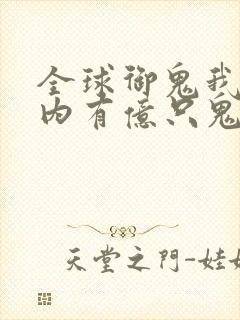 全球御鬼我
内有億只鬼
天堂之門-娃娃